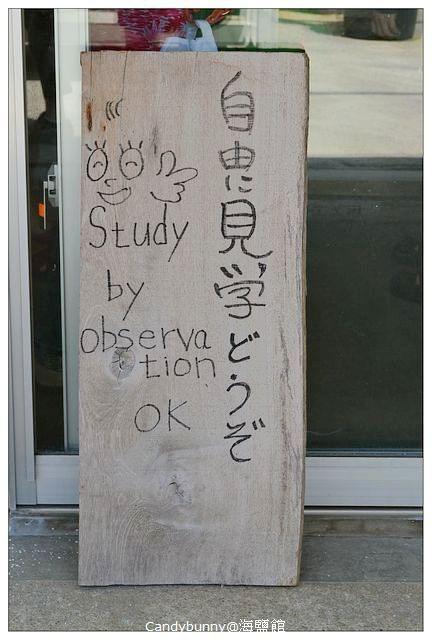 自由に見学どうぞ
Study
by
observa
tion
OK
Candybunny@海鹽館